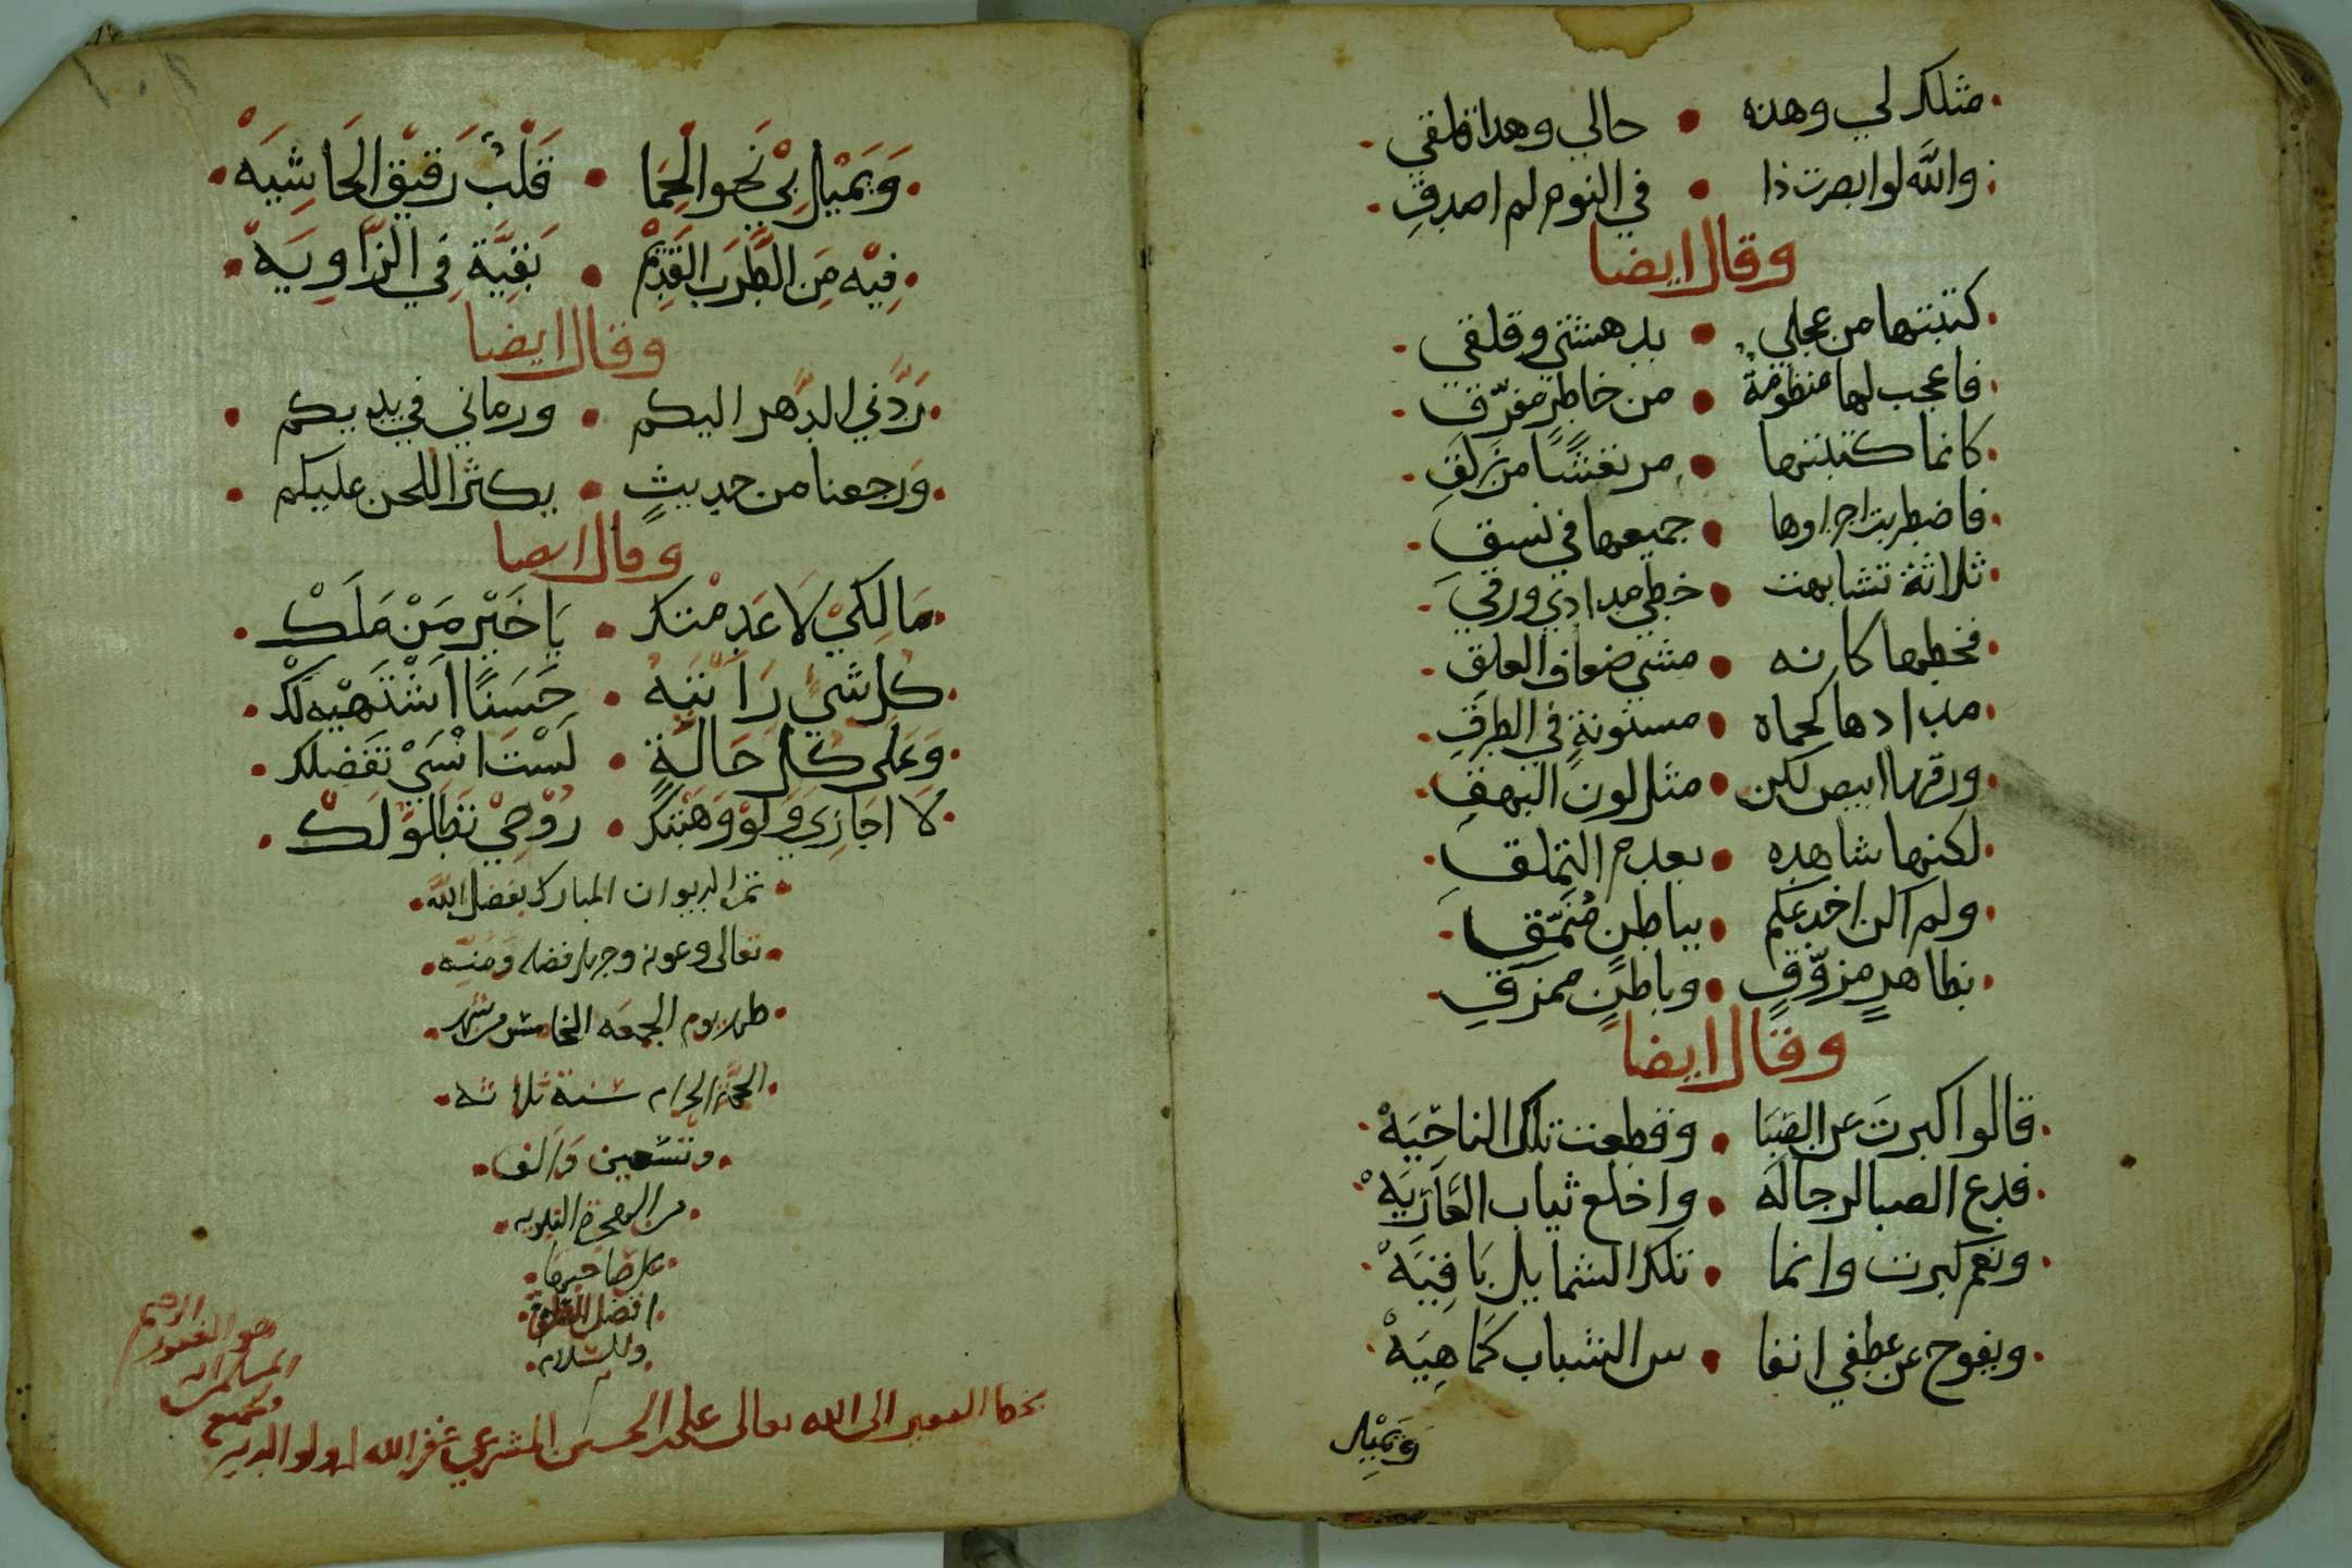 مثلك لي وهذه • حالي وهذا قلقي
والله لو ابصرت ذا • في النوم لم اصدق
وقال ايضا
كتبتها من عجلي • بدهشتي وقلقي
فاعجب لها منظومة • من خاطر مفرق
كانما كتبتها • مرتعشا من زلق
فاضطربت اجزاوها • جميعها في نسق
ثلاثة تشابهت • خطي مدادي ورقي
فخطها كانه • مشي ضعاف العلق
مدادها كحماه • مسنونة في الطرق
ورقها ابيض لكن • مثل لون البهق
لكنها شاهده • بعدم التملق
ولم اكن اخدعكم • بباطن منمق
بظاهر مزوق • وباطن ممزق
وقال ايضا
قالوا كبرت عن الصبا • وقطعت تلك الناحيه
فدع الصبا لرجاله • واخلع ثياب العاريه
ونعم كبرت وانما • تلك الشمايل باقيه
ويفوح من عطفي انفا • س الشباب كما هيه
ويميل
ويميل بي نحو الحما • قلب رقيق الحاشيه
فيه من الطرب القديم • بقية في الزاويه
وقال ايضا
ردني الدهر اليكم • ورماني في يديكم
ورجعنا من حديث • يكثر اللحن عليكم
وقال ايضا
مالكي لا عدمتك • يا خير من ملك
كل شي رايته • حسنا اشتهيه لك
وعلى كل حالة • لست انسى تفضلك
لا اجازي ولو وهبتك • روحي تطاولك
تم الديوان المبارك بفضل الله
تعالى وعونه وجزيل فضله ومنه
ظهر يوم الجمعه الخامس من شهر
الحجة الحرام سنة ثلاثه
وتسعين والف
من الهجرة النبويه
على صاحبها
افضل الصلوة
والسلام
بخط الفقير الى الله تعالى علي الحسن المشرعي غفر الله له ولوالديه
ولجميع
المسلمين انه
هو الغفور
الرحيم